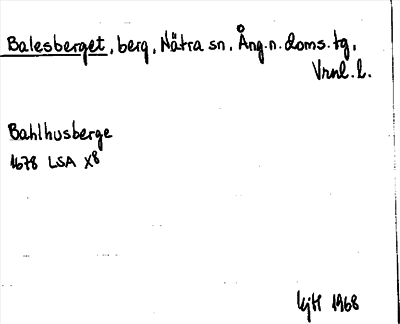 Balesberget, berg, Nätra sn, Ång. n. doms. tg,
Vrnl. l.
Bahlhusberge
1678 LSA X8
1968